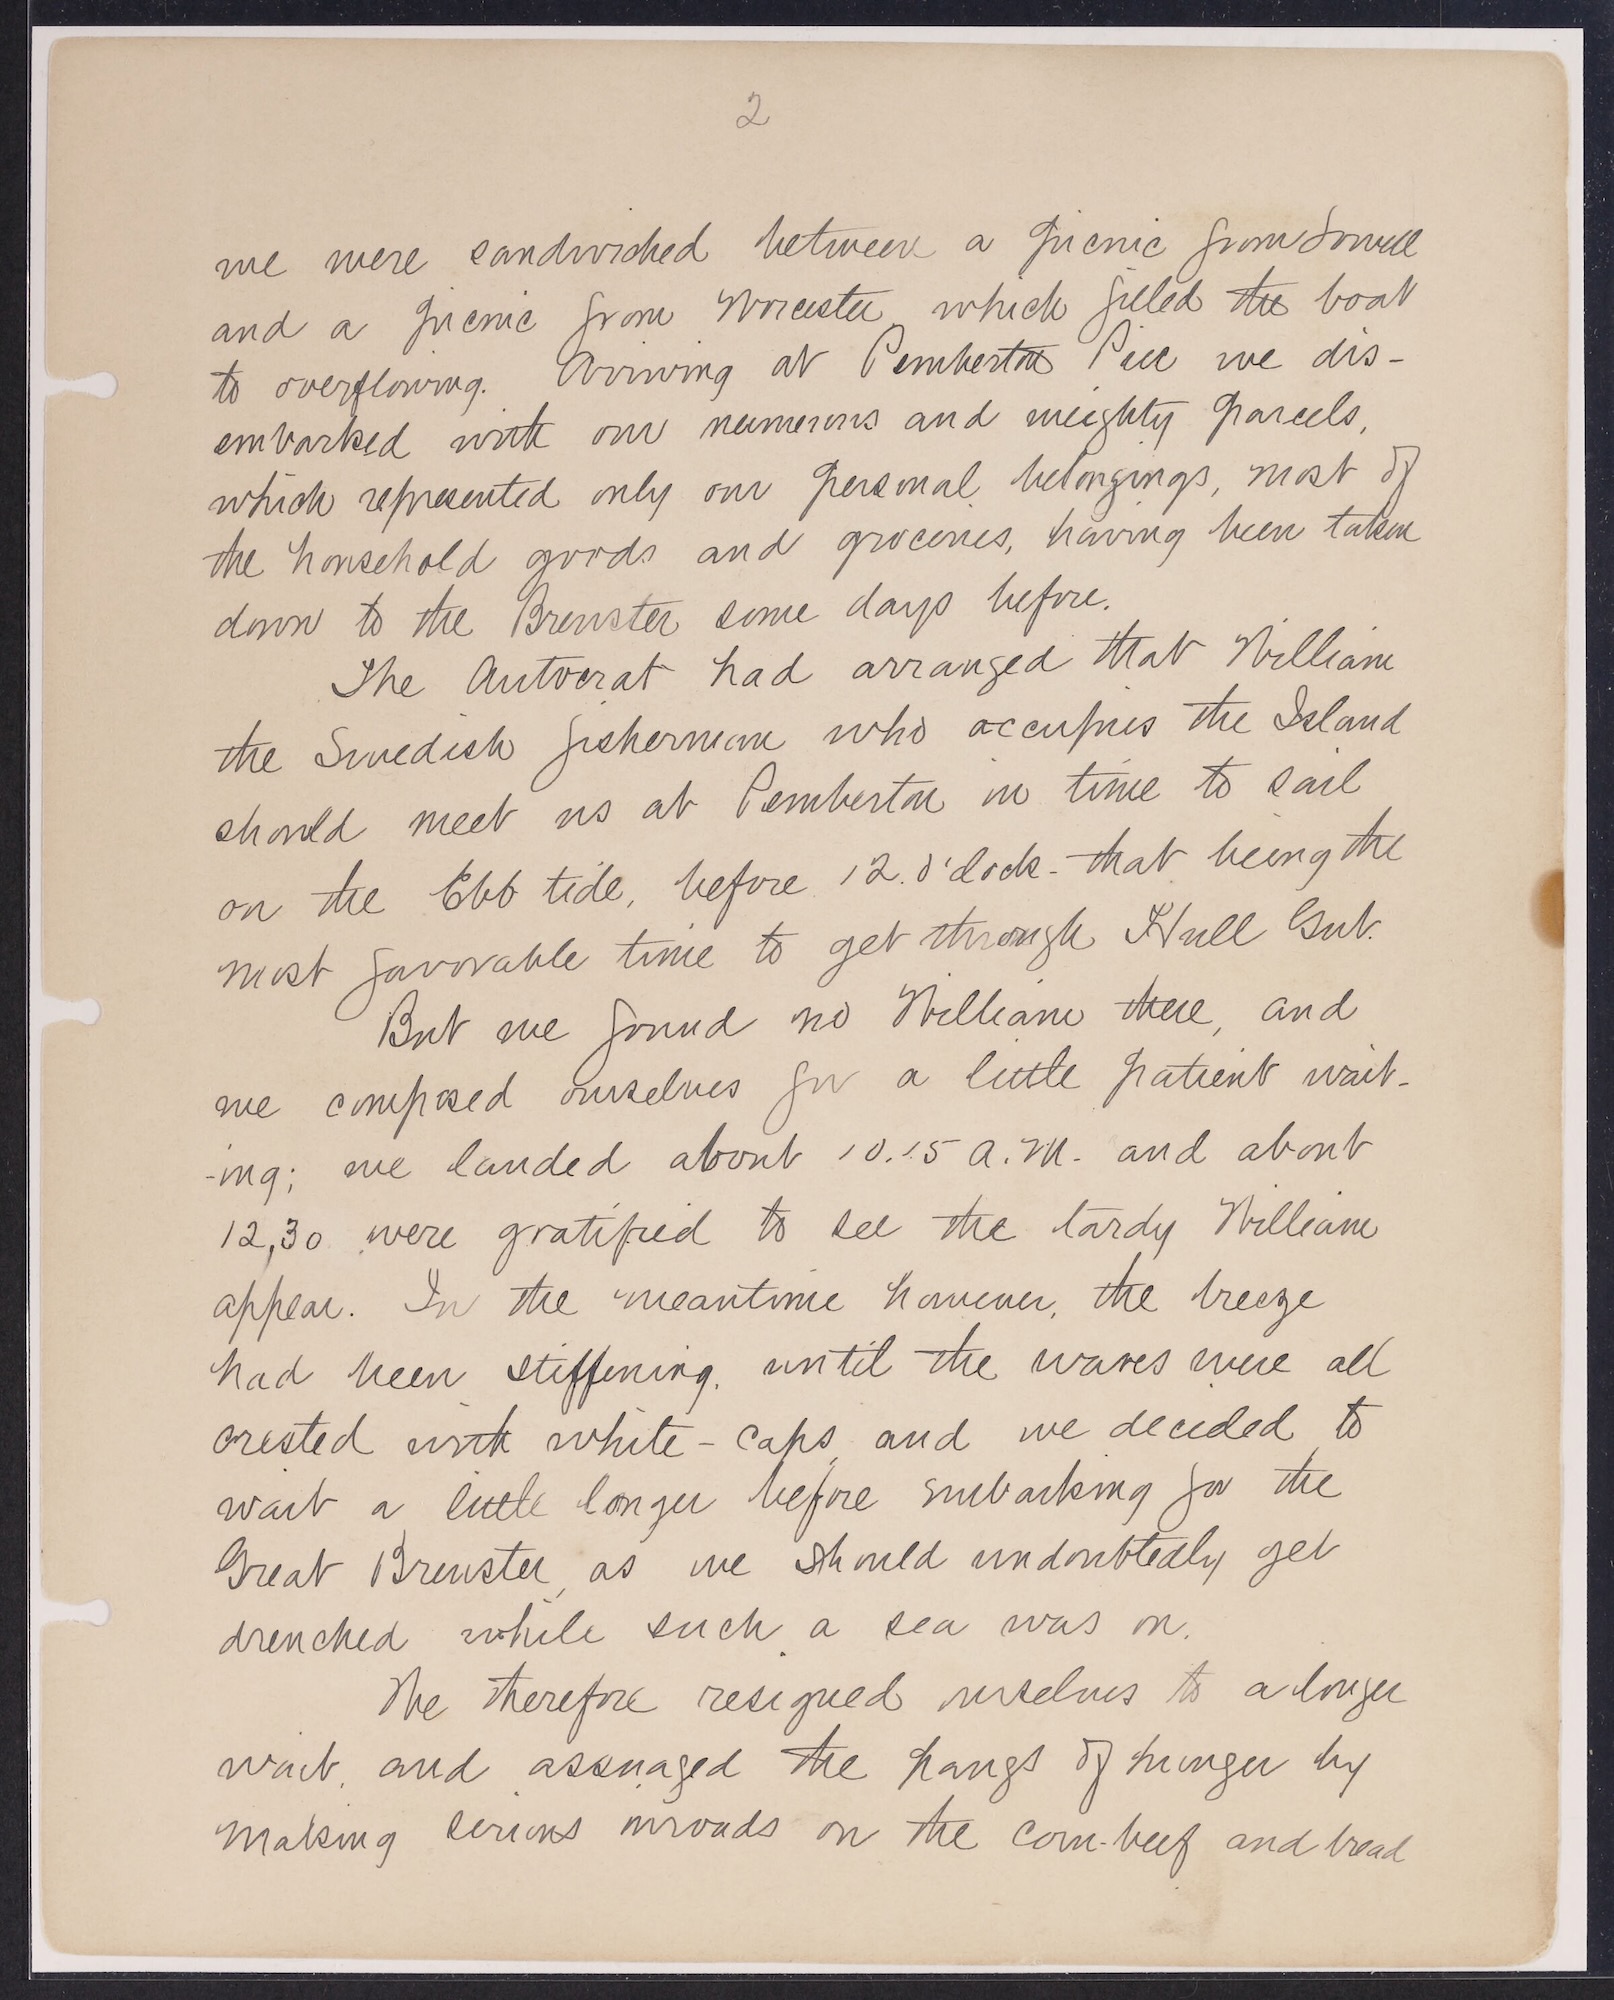 2
we were sandwiched between a picnic from Lowell
and a picnic from Worcester which filled the boat
to overflowing. Arriving at Pemberton Pier we dis-
embarked with our numerous and weighty parcels,
which represented only our personal belongings, most of
the household goods and groceries, having been taken
down to the Brewster some days before.
The Autocrat had arranged that William
the Swedish fisherman who occupies the Island
should meet us at Pemberton in time to sail
on the Ebb tide, before 12. o'clock - that being the
most favorable time to get through Hull Gut.
But we found no William there, and
we composed ourselves for a little patient wait-
-ing; we landed about 10.15 A.M. and about
12,30 were gratified to see the tardy William
appear. In the meantime however, the breeze
had been stiffening, until the waves were all
crested with white-caps, and we decided to
wait a little longer before embarking for the
Great Brewster, as we should undoubtedly get
drenched while such a sea was on.
We therefore resigned ourselves to a longer
wait, and assuaged the pangs of hunger by
making serious inroads on the corn-beef and bread